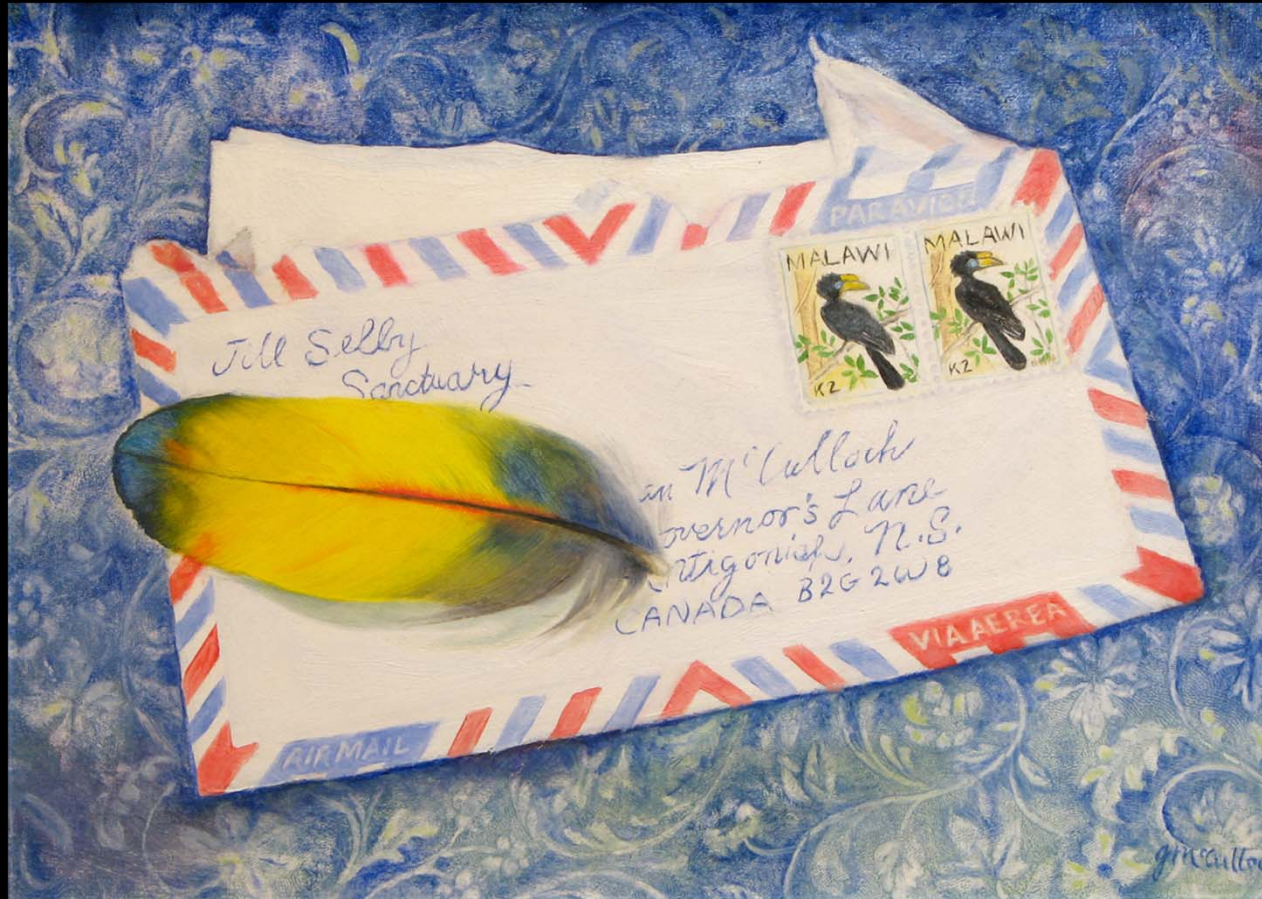 PAR AVION
MALAWI
K2
MALAWI
K2
Jill Selby
Sanctuary
an McCulloch
overnor's Lane
ntigonish, N.S.
CANADA B2G 2W8
VIA AEREA
AIR MAIL
g mcculloc